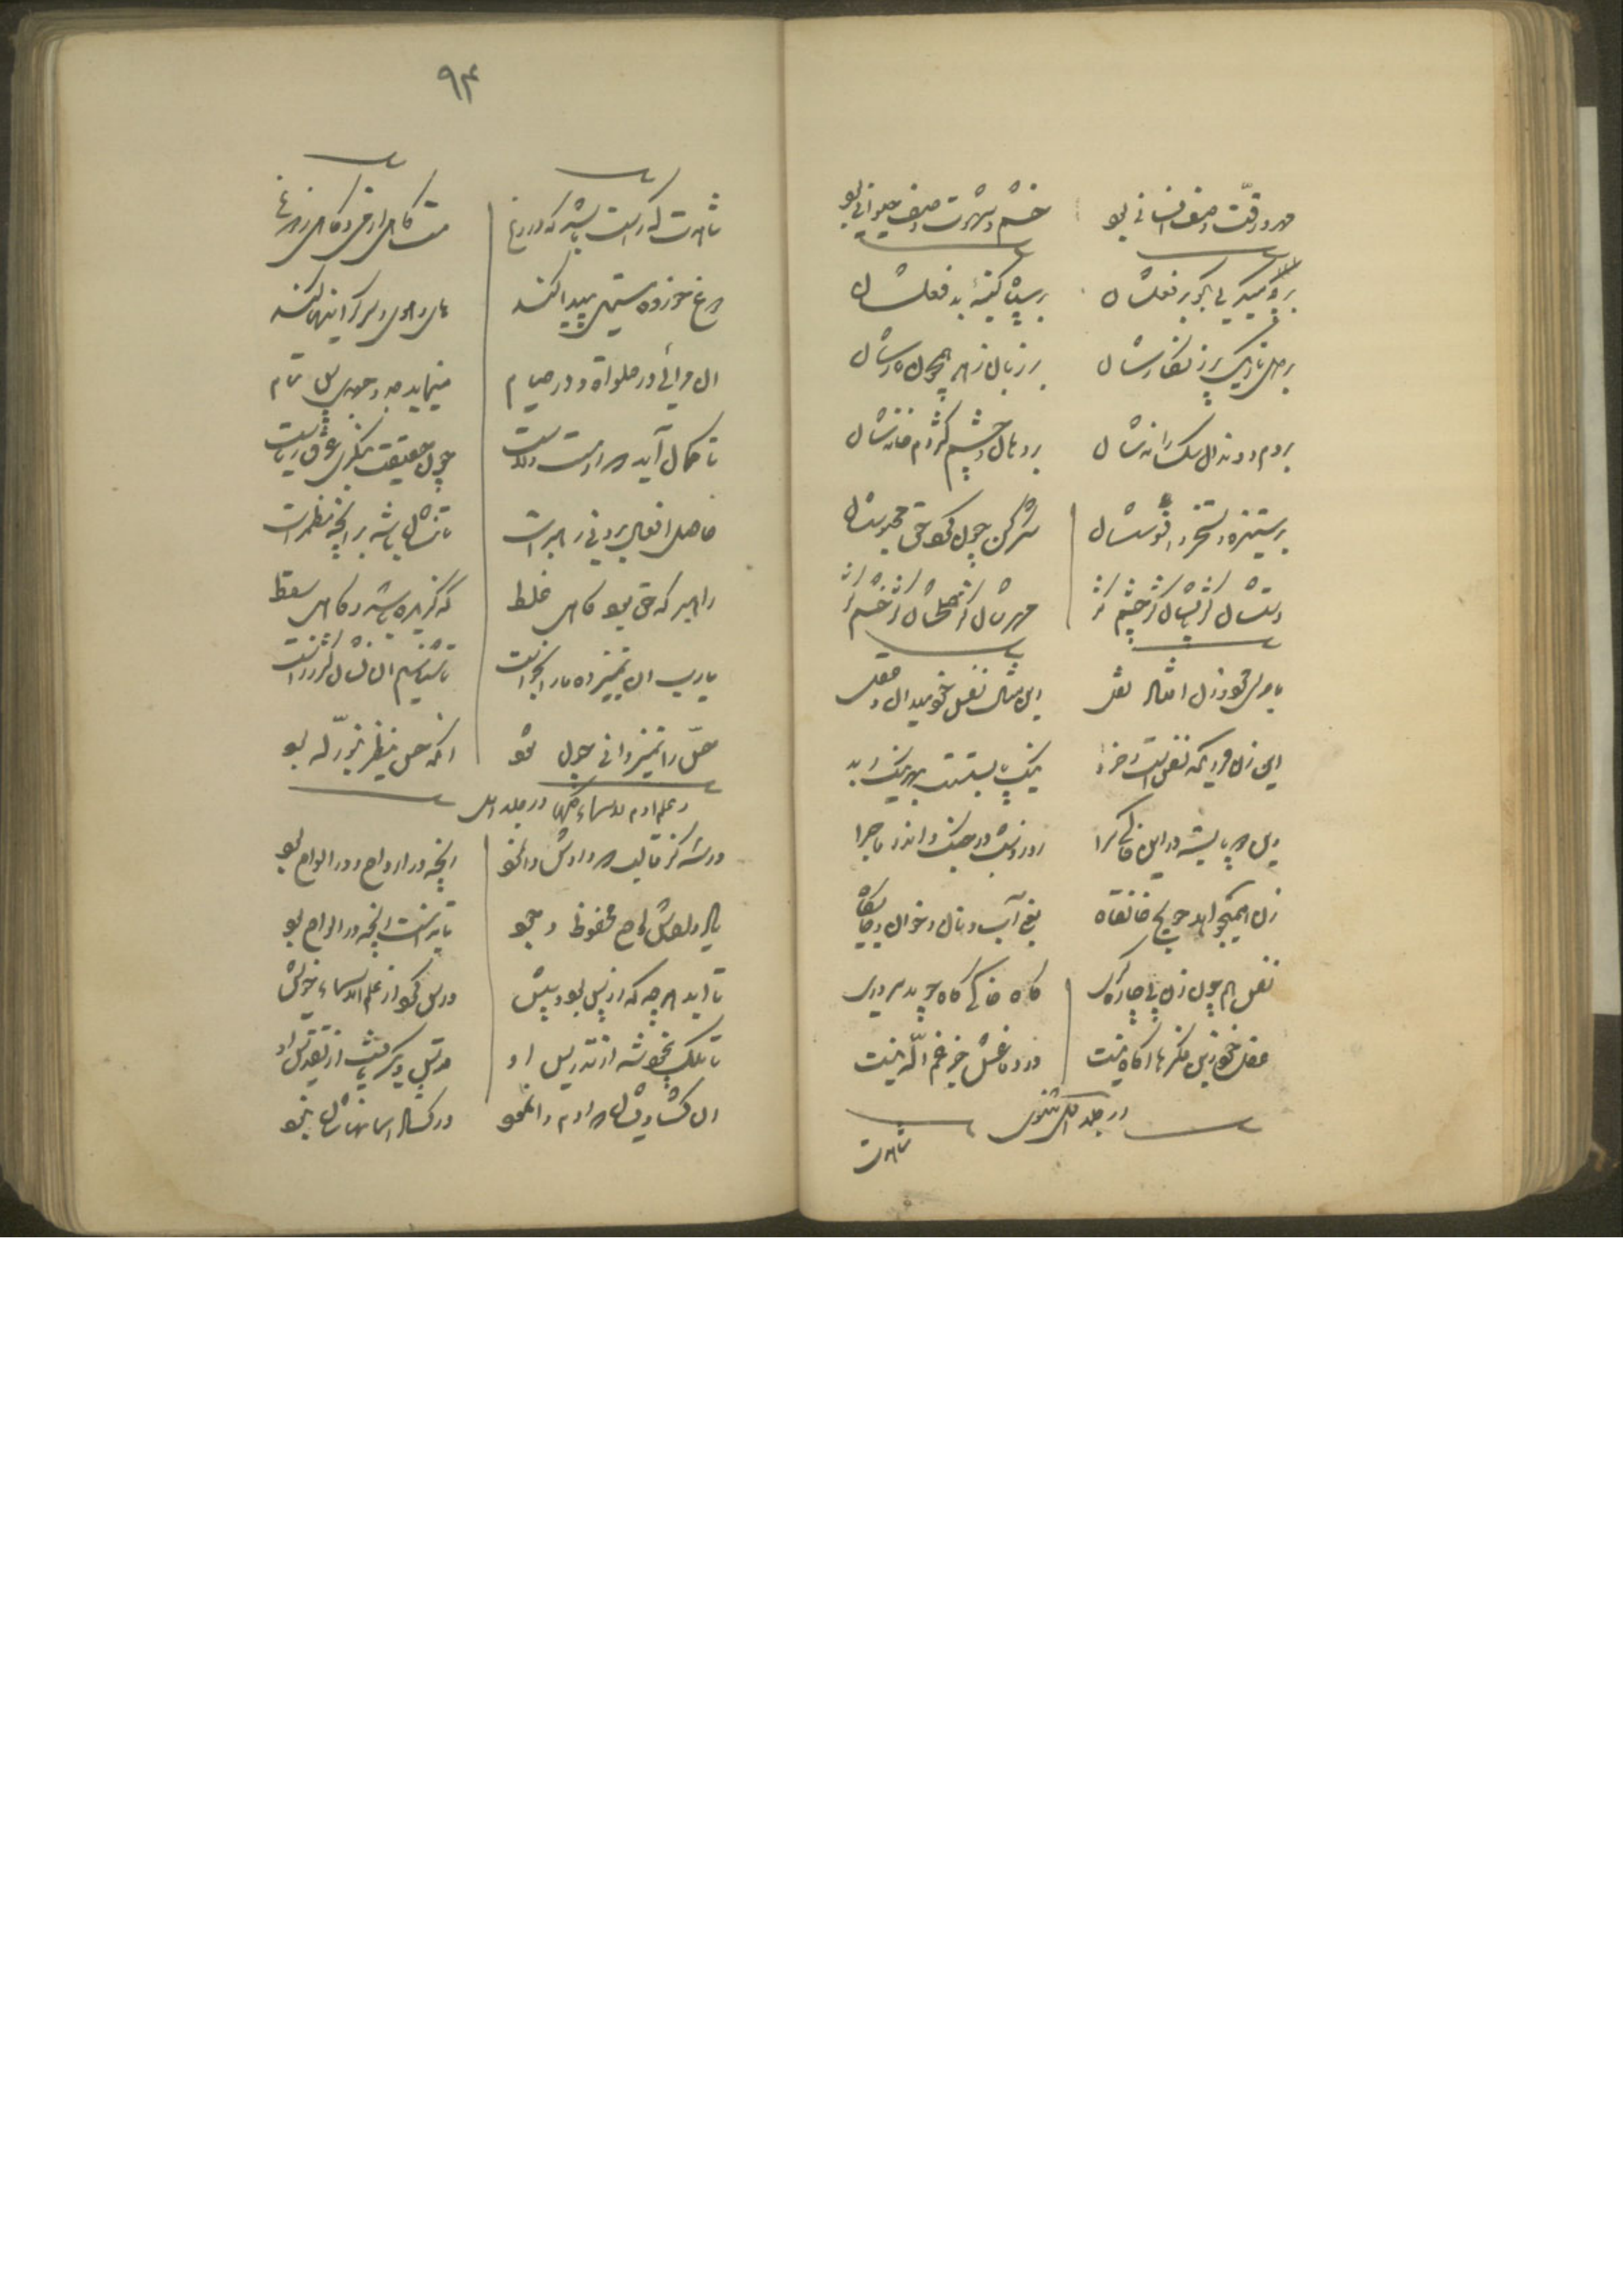 مهر و رقّت وصف انسانی بود
خشم و شهوت وصف حیوانی بود
بر
بر سینه پر کینه بد فعلشان
بر زبان زهر همچون مارشان
بر دم و دندان سگسارانه‌شان
بر دهان و چشم کژدم خانه‌شان
بر ستیز و تسخر و افسوسشان
شکر کن چون کرد حق محبوسشان
دستشان کژ پایشان کژ چشم کژ
مهرشان کژ صلحشان کژ خشم کژ
این مثال نفس خود میدان و عقل
این زن و مردی که نفس است و خرد
نیک بایستست بهر نیک و بد
وین دو بایسته در این خاکی سرا
روز و شب در جنگ و اندر ماجرا
زن همیخواهد حویج خانقاه
یعنی آب و نان و خوان و جایگاه
نفس همچون زن پی چاره‌گری
گاه خاکی گاه جوید سروری
عقل خود زین فکرها آگاه نیست
در دماغش جز غم الله نیست
در جلد اول مثنوی
شاهدت
۹۴
شاهدت گه راست باشد گه دروغ
مست گاهی از می و گاهی ز دوغ
دوغ خورده مستی پیدا کند
های و هوی و سرگرانیها کند
آن مرائی در صلوة و در صیام
مینماید جد و جهدی بس تمام
تا گمان آید که او مست ولاست
چون حقیقت بنگری غرق ریاست
حاصل افعال برونی رهبر است
تا نشان باشد بر آنچه مضمر است
راهبر گه حق بود گاهی غلط
گه گزیده باشد و گاهی سقط
یا رب آن تمییز ده ما را بخواست
تا شناسیم آن نشان کژ ز راست
حسّ را تمییز دانی چون شود
آنکه حس ینظر بنور الله بود
و علم آدم الاسماء کلها در جلد اول
آنچه در ارواح و در الواح بود
یاد دادش لوح محفوظ وجود
تا بدانست آنچه در الواح بود
تا ابد هر چه که از پس بود و پیش
درس کرد از علم الاسماء خویش
تا ملک بیخود شد از تدریس او
قدس دیگر یافت از تقدیس او
آن گشادیشان که از آدم رو نمود
در گشاد آسمانهاشان نبود